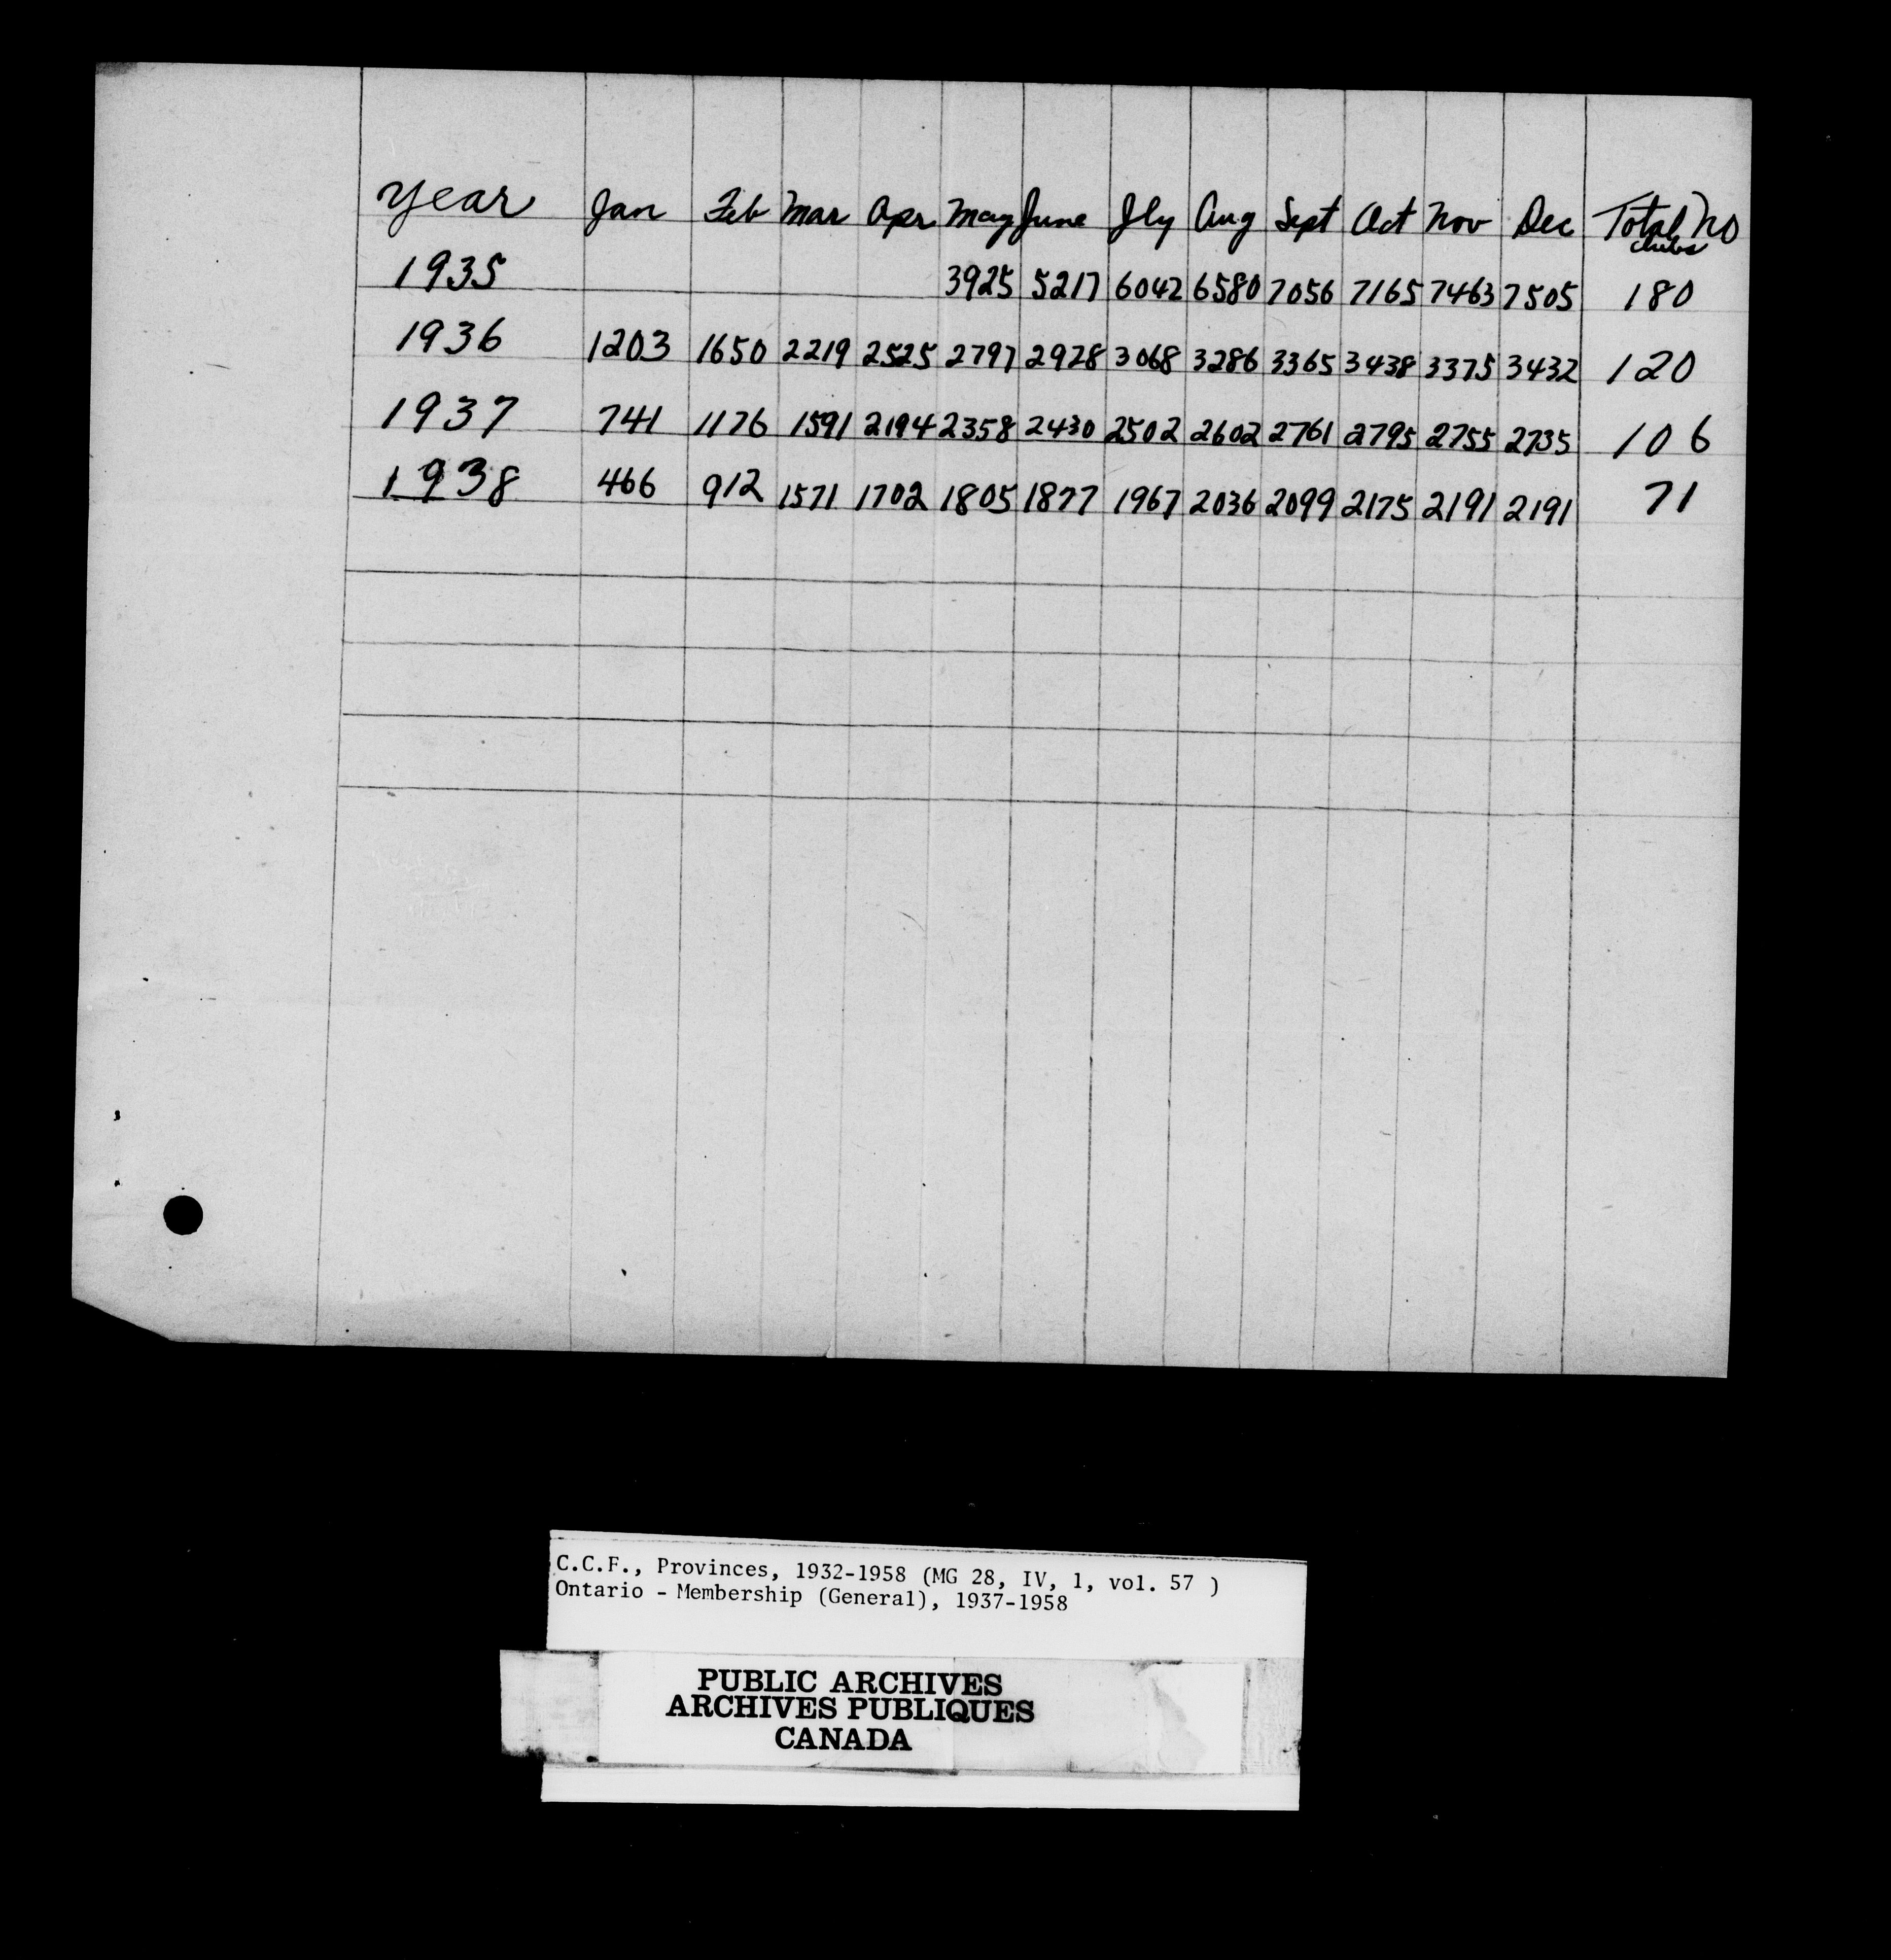 Year Jan Feb Mar Apr May June Jly Aug Sept Oct Nov Dec Total No
clubs
1935 3925 5217 6042 6580 7056 7165 7463 7505 180
1936 1203 1650 2219 2525 2797 2928 3068 3286 3365 3438 3375 3432 120
1937 741 1176 1591 2194 2358 2430 2502 2602 2761 2795 2755 2735 106
1938 466 912 1571 1702 1805 1877 1967 2036 2099 2175 2191 2191 71
C.C.F., Provinces, 1932-1958 (MG 28, IV, 1, vol. 57 )
Ontario - Membership (General), 1937-1958
PUBLIC ARCHIVES
ARCHIVES PUBLIQUES
CANADA